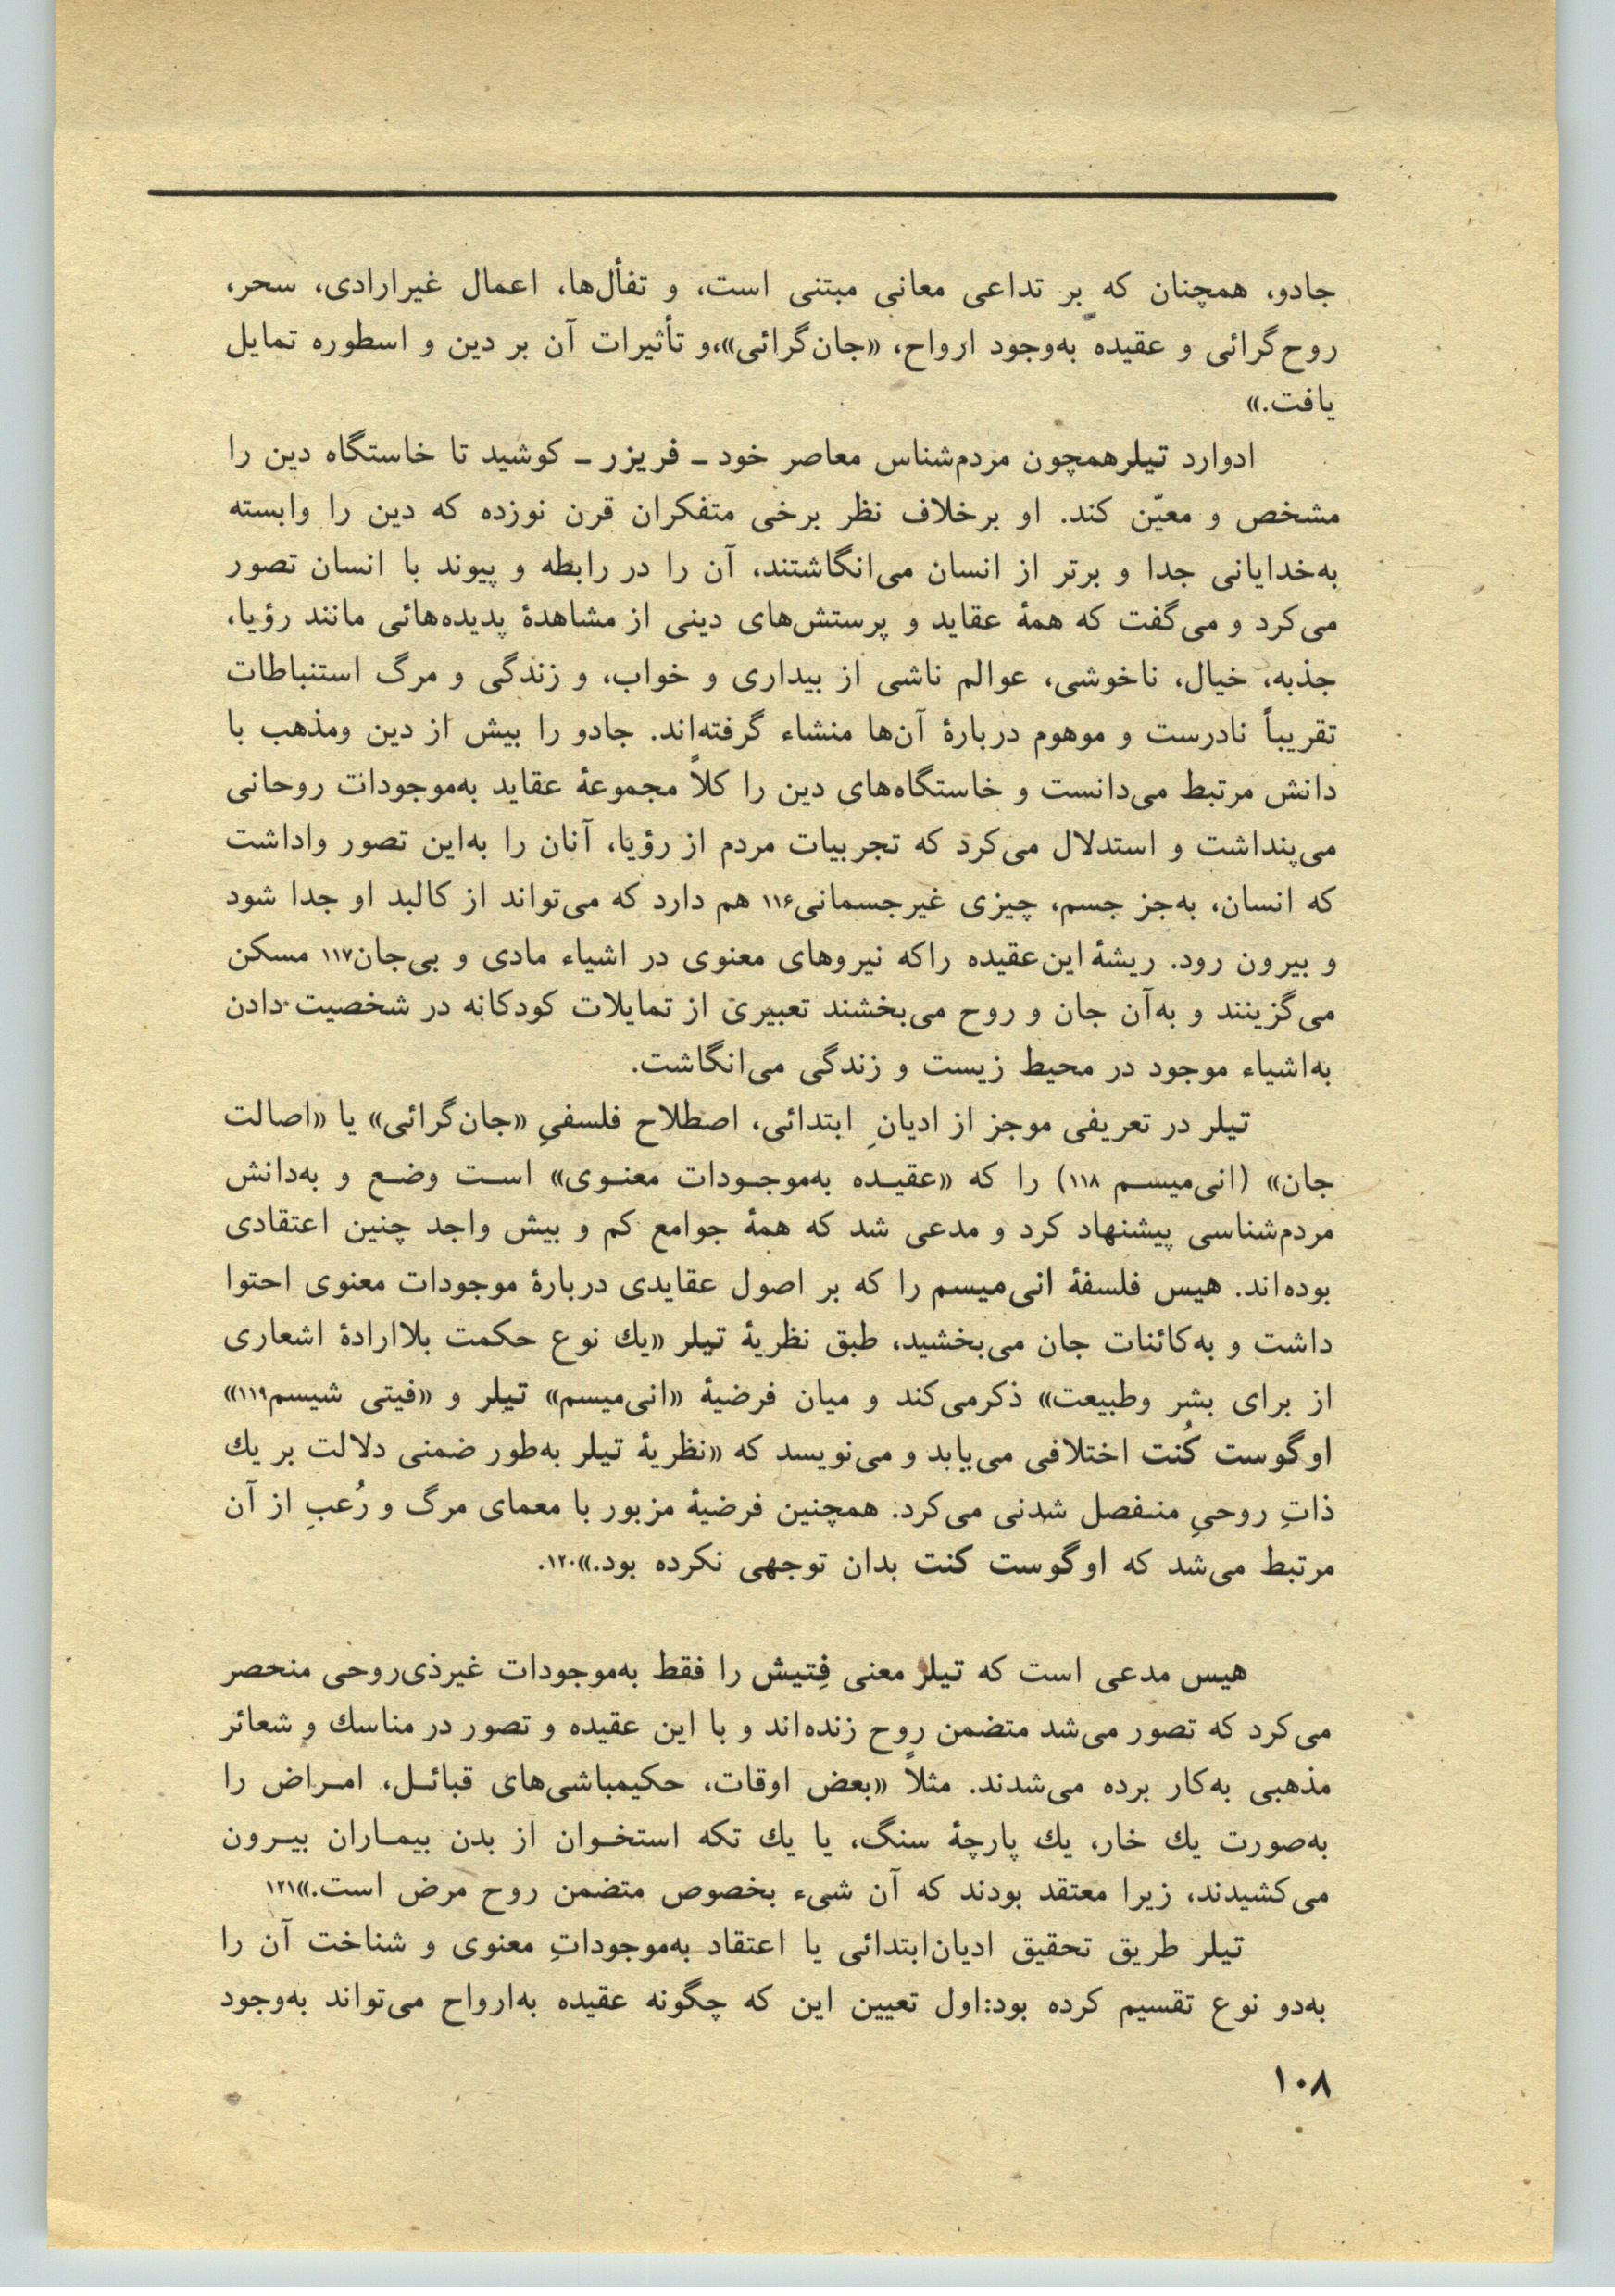 جادو، همچنان که بر تداعی معانی مبتنی است، و تفأل‌ها، اعمال غیرارادی، سحر،
روح‌گرائی و عقیده به‌وجود ارواح، «جان‌گرائی»،و تأثیرات آن بر دین و اسطوره تمایل
یافت.»
ادوارد تیلرهمچون مردم‌شناس معاصر خود ـ فریزر ـ کوشید تا خاستگاه دین را
مشخص و معیّن کند. او برخلاف نظر برخی متفکران قرن نوزده که دین را وابسته
به‌خدایانی جدا و برتر از انسان می‌انگاشتند، آن را در رابطه و پیوند با انسان تصور
می‌کرد و می‌گفت که همهٔ عقاید و پرستش‌های دینی از مشاهدهٔ پدیده‌هائی مانند رؤیا،
جذبه، خیال، ناخوشی، عوالم ناشی از بیداری و خواب، و زندگی و مرگ استنباطات
تقریباً نادرست و موهوم دربارهٔ آن‌ها منشاء گرفته‌اند. جادو را بیش از دین ومذهب با
دانش مرتبط می‌دانست و خاستگاه‌های دین را کلاً مجموعهٔ عقاید به‌موجودات روحانی
می‌پنداشت و استدلال می‌کرد که تجربیات مردم از رؤیا، آنان را به‌این تصور واداشت
که انسان، به‌جز جسم، چیزی غیرجسمانی۱۱۶ هم دارد که می‌تواند از کالبد او جدا شود
و بیرون رود. ریشهٔ این‌عقیده راکه نیروهای معنوی در اشیاء مادی و بی‌جان۱۱۷ مسکن
می‌گزینند و به‌آن جان و روح می‌بخشند تعبیری از تمایلات کودکانه در شخصیت دادن
به‌اشیاء موجود در محیط زیست و زندگی می‌انگاشت.
تیلر در تعریفی موجز از ادیانِ ابتدائی، اصطلاح فلسفیِ «جان‌گرائی» یا «اصالت
جان» (انی‌میسـم ۱۱۸) را که «عقیـده به‌موجـودات معنـوی» اسـت وضـع و به‌دانش
مردم‌شناسی پیشنهاد کرد و مدعی شد که همهٔ جوامع کم و بیش واجد چنین اعتقادی
بوده‌اند. هیس فلسفهٔ انی‌میسم را که بر اصول عقایدی دربارهٔ موجودات معنوی احتوا
داشت و به‌کائنات جان می‌بخشید، طبق نظریهٔ تیلر «یك نوع حکمت بلاارادهٔ اشعاری
از برای بشر وطبیعت» ذکرمی‌کند و میان فرضیهٔ «انی‌میسم» تیلر و «فیتی شیسم۱۱۹»
اوگوست کُنت اختلافی می‌یابد و می‌نویسد که «نظریهٔ تیلر به‌طور ضمنی دلالت بر یك
ذاتِ روحیِ منـفصل شدنی می‌کرد. همچنین فرضیهٔ مزبور با معمای مرگ و رُعبِ از آن
مرتبط می‌شد که اوگوست کنت بدان توجهی نکرده بود.»۱۲۰.
هیس مدعی است که تیلر معنی فِتیش را فقط به‌موجودات غیرذی‌روحی منحصر
می‌کرد که تصور می‌شد متضمن روح زنده‌اند و با این عقیده و تصور در مناسك و شعائر
مذهبی به‌کار برده می‌شدند. مثلاً «بعض اوقات، حکیمباشی‌های قبائـل، امـراض را
به‌صورت یك خار، یك پارچهٔ سنگ، یا یك تکه استخـوان از بدن بیمـاران بیـرون
می‌کشیدند، زیرا معتقد بودند که آن شیء بخصوص متضمن روح مرض است.»۱۲۱
تیلر طریق تحقیق ادیان‌ابتدائی یا اعتقاد به‌موجوداتِ معنوی و شناخت آن را
به‌دو نوع تقسیم کرده بود:اول تعیین این که چگونه عقیده به‌ارواح می‌تواند به‌وجود
۱۰۸